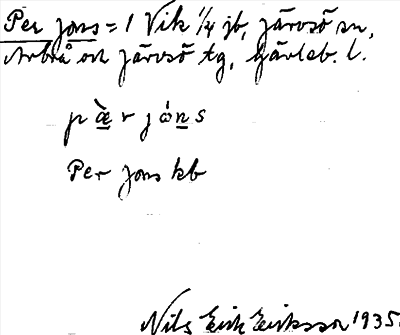 Per Jons = 1 Vik 1/4 jb, Järvsö sn,
Arbrå och Järvsö tg, Gävleb. l.
pæ̀r jóns
Per Jons kb
Nils Erik Eriksson 1935.